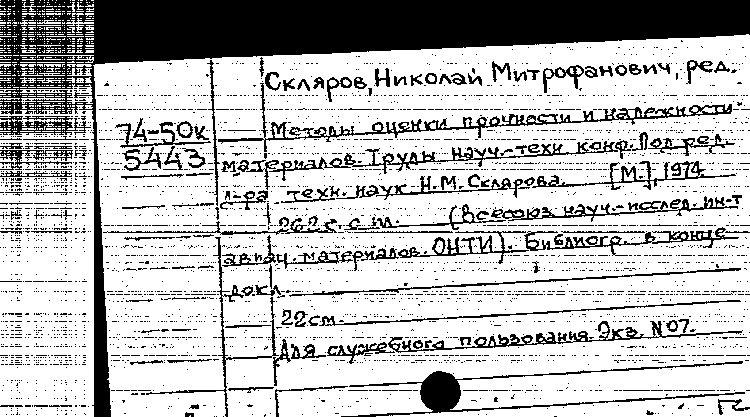 Скляров, Николай Митрофанович, ред.
74-50к
5443
Методы оценки прочности и надежности
материалов. Труды науч.-техн. конф. Под ред.
д-ра техн. наук Н.М. Склярова. [М.], 1974
262 с. с ил. (Всесоюз. науч.-исслед. ин-т
авиац. материалов. ОНТИ). Библиогр. в конце
докл.
22см.
Для служебного пользования. Экз. №07.